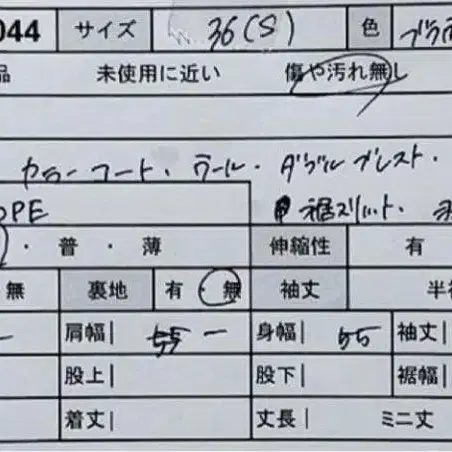 044 サイズ 36(S) 色 ブラ
品 未使用に近い 傷や汚れ無し
カラーコート・ウール・ダブルブレスト・
OPE 裾スリット・
・ 普 ・ 薄 伸縮性 有
無 裏地 有 ・ 無 袖丈 半袖
肩幅| 55 ー 身幅| 55 袖丈|
股上| 股下| 裾幅|
着丈| 丈長| ミニ丈